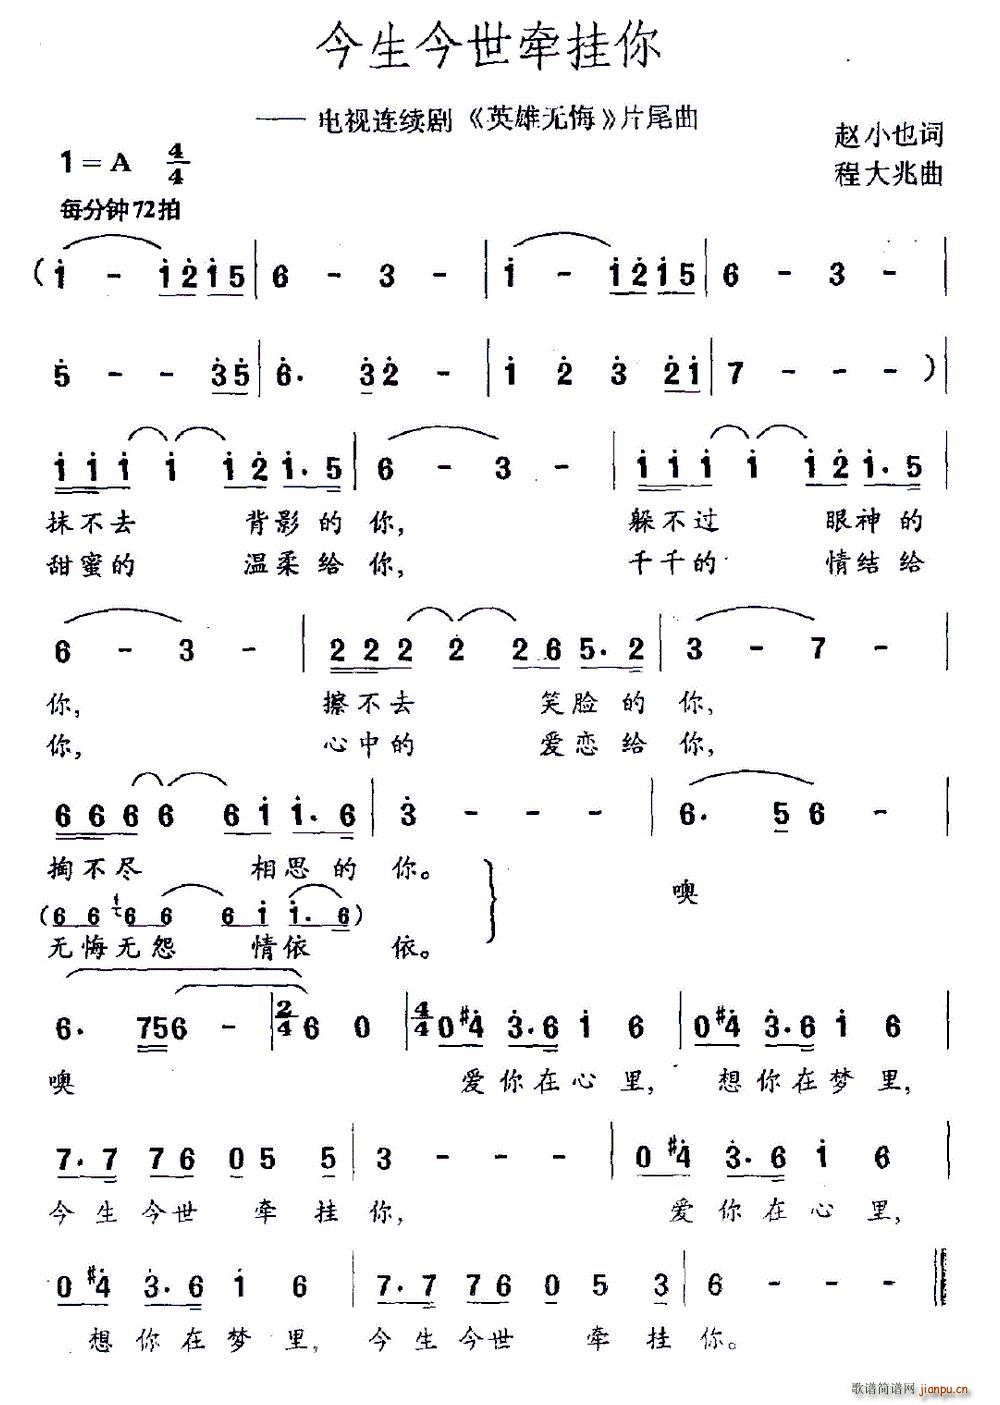 今生今世牵挂你
—— 电视连续剧《英雄无悔》片尾曲
赵小也词
1=A 4/4
程大兆曲
每分钟72拍
( 1 - 1 2 1 5 | 6 - 3 - | 1 - 1 2 1 5 | 6 - 3 - |
5 - - 3 5 | 6. 3 2 - | 1 2 3 2 1 | 7 - - - ) |
1 1 1 1 1 2 1. 5 | 6 - 3 - | 1 1 1 1 1 2 1. 5
抹不去 背影的你, 躲不过 眼神的
甜蜜的 温柔给你, 千千的 情结给
6 - 3 - | 2 2 2 2 2 6 5. 2 | 3 - 7 - |
你, 擦不去 笑脸的 你,
你, 心中的 爱恋给 你,
6 6 6 6 6 1 1. 6 | 3 - - - | 6. 5 6 - |
掏不尽 相思的 你。 噢
( 6 6 6 6 6 1 1. 6 )
无悔无怨 情依 依。
6. 7 5 6 - | 2/4 6 0 | 4/4 0 #4 3. 6 1 6 | 0 #4 3. 6 1 6
噢 爱你在心里, 想你在梦里,
7. 7 7 6 0 5 5 | 3 - - - | 0 #4 3. 6 1 6
今生今世 牵挂你, 爱你在心里,
0 #4 3. 6 1 6 | 7. 7 7 6 0 5 3 | 6 - - - ‖
想你在梦里, 今生今世 牵挂你。
歌谱简谱网
jianpu.cn